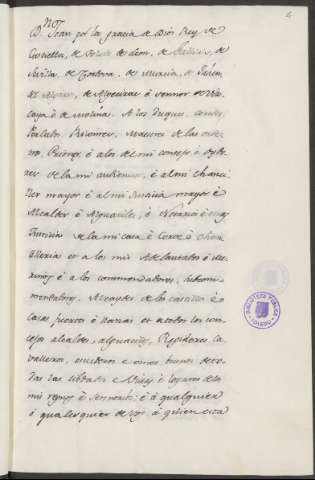 4
Dn. Joan por la gracia de Dios Rey de
Castilla, de Toledo de Leon, de Galicia, de
Sevilla, de Cordova, de Murcia, de Jahen,
de Algecira è sennor de Viz
caya è de Molina. A los Duques, Condes,
Perlados, Ricomes, Maestres de las orde
nes, Priores, è a los del mi consejo è oydo
res de la mi audiencia, è al mi chanci
ller mayor è al mi Justicia mayor è
Alcaldes è Alguaciles, è Notarios è otras
Justicias de la mi casa è Corte è chan
cilleria et a los mis Adelantados è me
rinos è a los commendadores,
Alcaydes de los castillos è
casas fuertes è llanas et a todos los con
cejos alcaldes, alguaciles, Regidores Ca
valleros, escuderos è omes buenos de to
das las cibdades è Villas è logares de los
mis regnos è sennorios, è à qualquier
ò qualesquier de vos à quien esta
BIBLIOTECA PUBLICA
TOLEDO